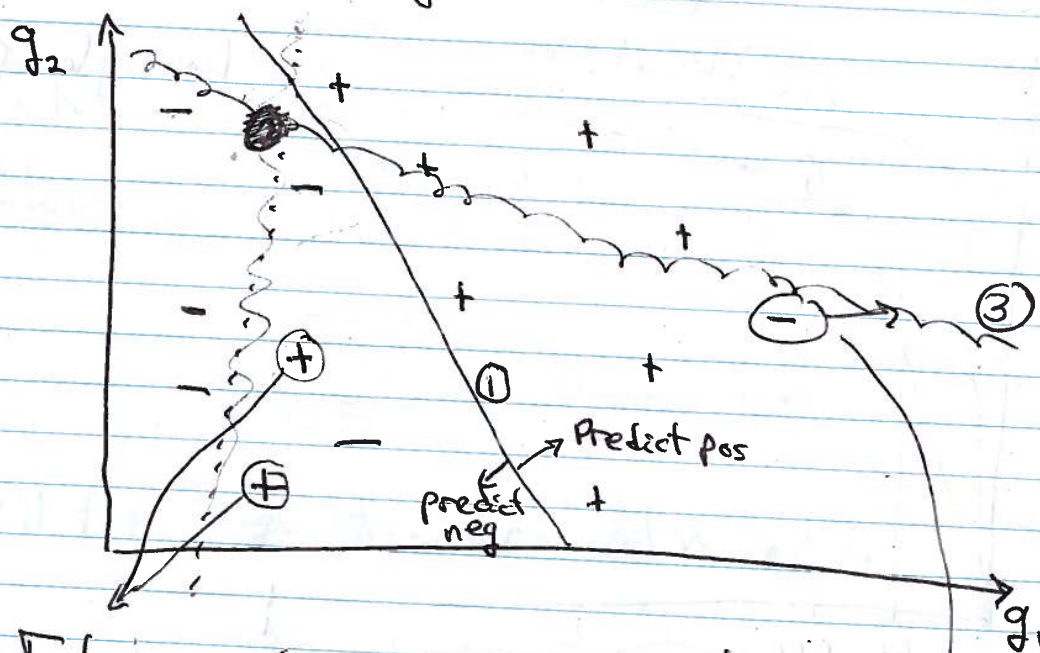 g₂
+
+
-
+
-
+
-
+
-
③
+
+
-
①
-
Predict pos
+
predict
neg
+
g₁